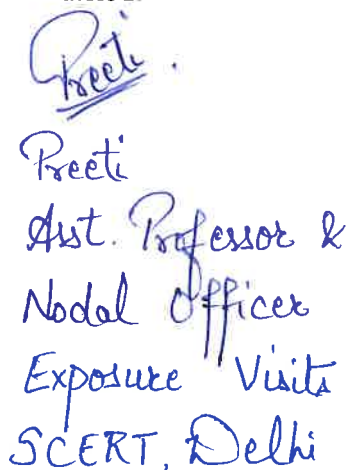 Preeti
Preeti
Asst. Professor &
Nodal Officer
Exposure Visits
SCERT, Delhi